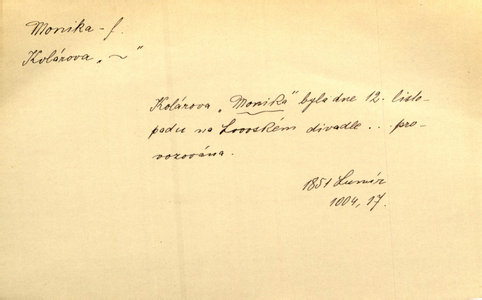 Monika - f.
Kolárova „~"
Kolárova „Monika" byla dne 12. listo-
padu na Lvovském divadle .. pro-
vozována.
1851 Lumír
1004, 17.